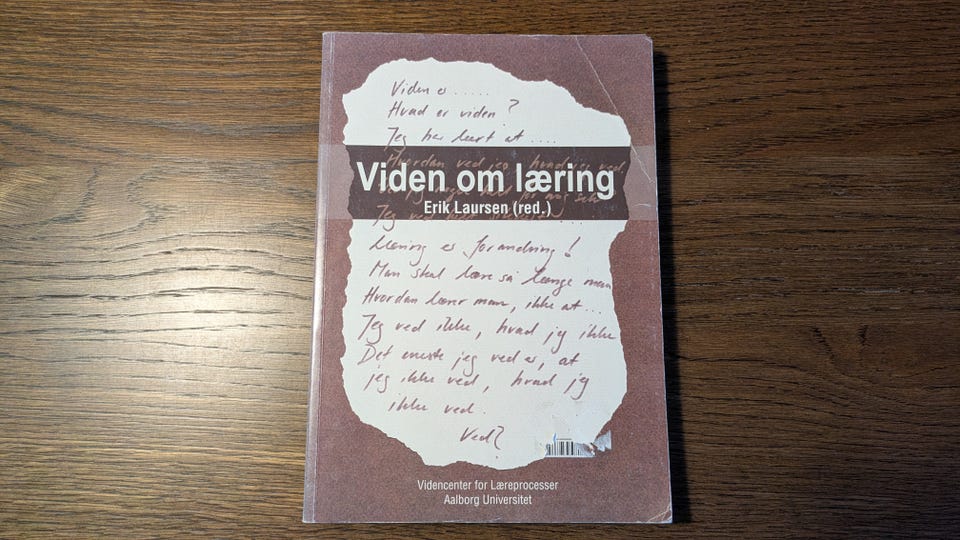 Viden er .....
Hvad er viden?
Jeg har lært at ....
Hvordan ved jeg, hvad jeg ved
Viden om læring
Erik Laursen (red.)
Jeg ved
Læring er forandring!
Man skal lære så længe man
Hvordan lærer man, ikke at ...
Jeg ved ikke, hvad jeg ikke
Det eneste jeg ved er, at
jeg ikke ved, hvad jeg
ikke ved.
Ved?
Videncenter for Læreprocesser
Aalborg Universitet